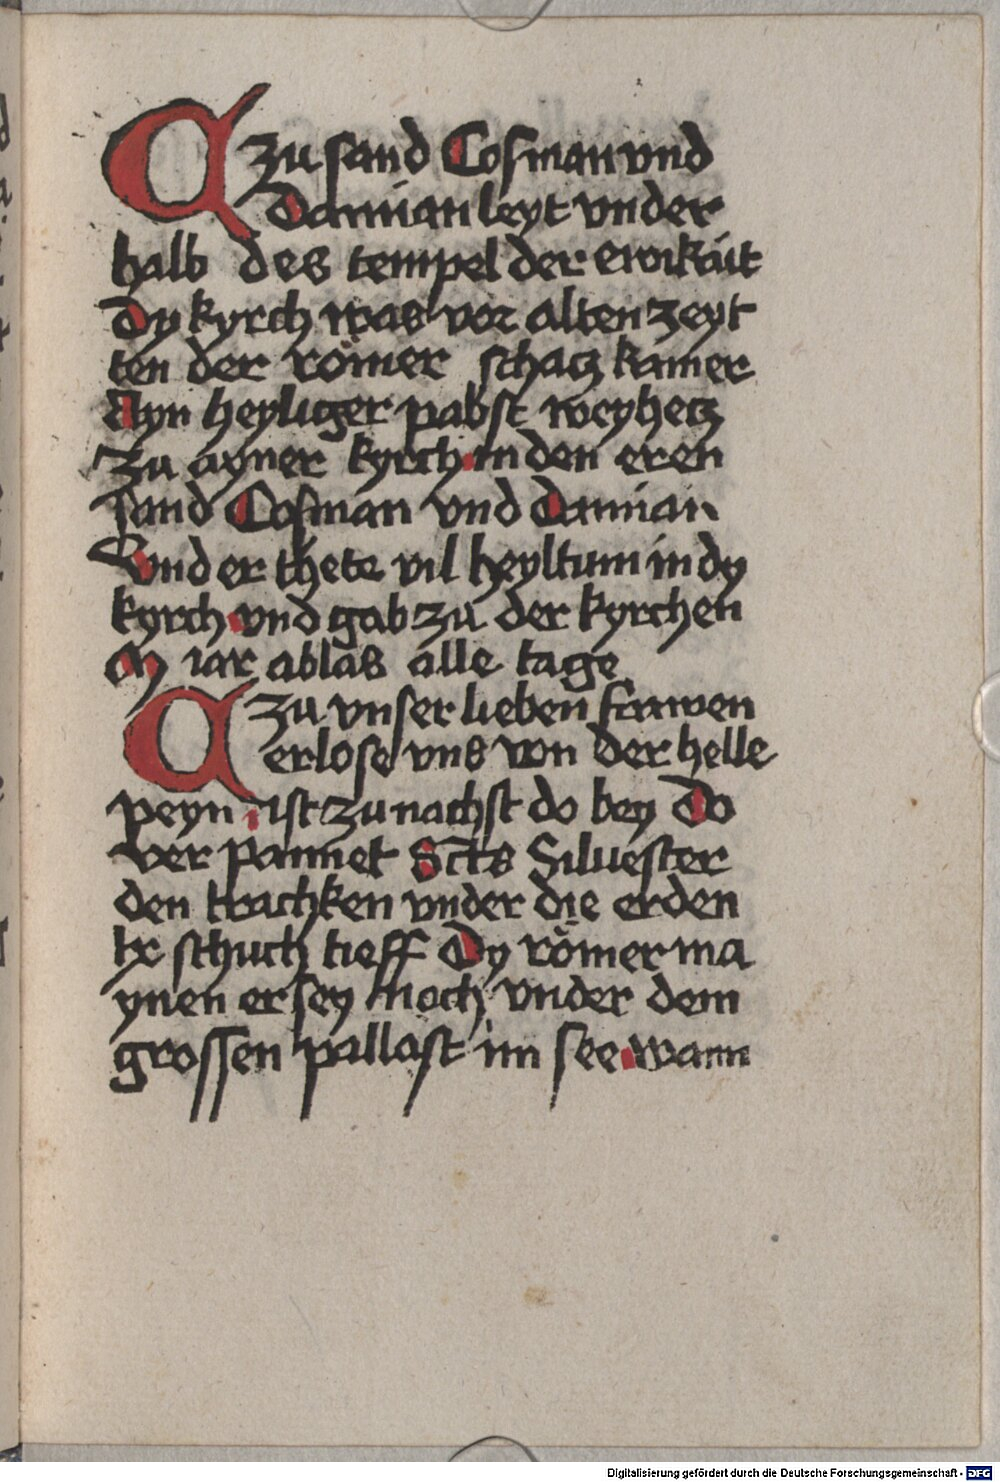 A zu sand Cosman vnd
Damian leyt vnder
halb des tempel der ewikait
Dy kyrch was vor alten zeyt
ten der römer schatz kamer
Ayn heyliger pabst weyhetz
zu ayner kyrch in den eren
sand Cosman vnd Damian
Vnd er thete vil heyltum in dy
kyrch vnd gab zu der kyrchen
M iar ablas alle tage
A zu vnser lieben frawen
erlose vns von der helle
peyn ist zu nachst do bey Do
ver pannet Scts Siluester
den trachken vnder die erden
lx schuch tieff Dy römer ma
ynen er sey noch vnder dem
grossen pallast im see wann
Digitalisierung gefördert durch die Deutsche Forschungsgemeinschaft - DFG